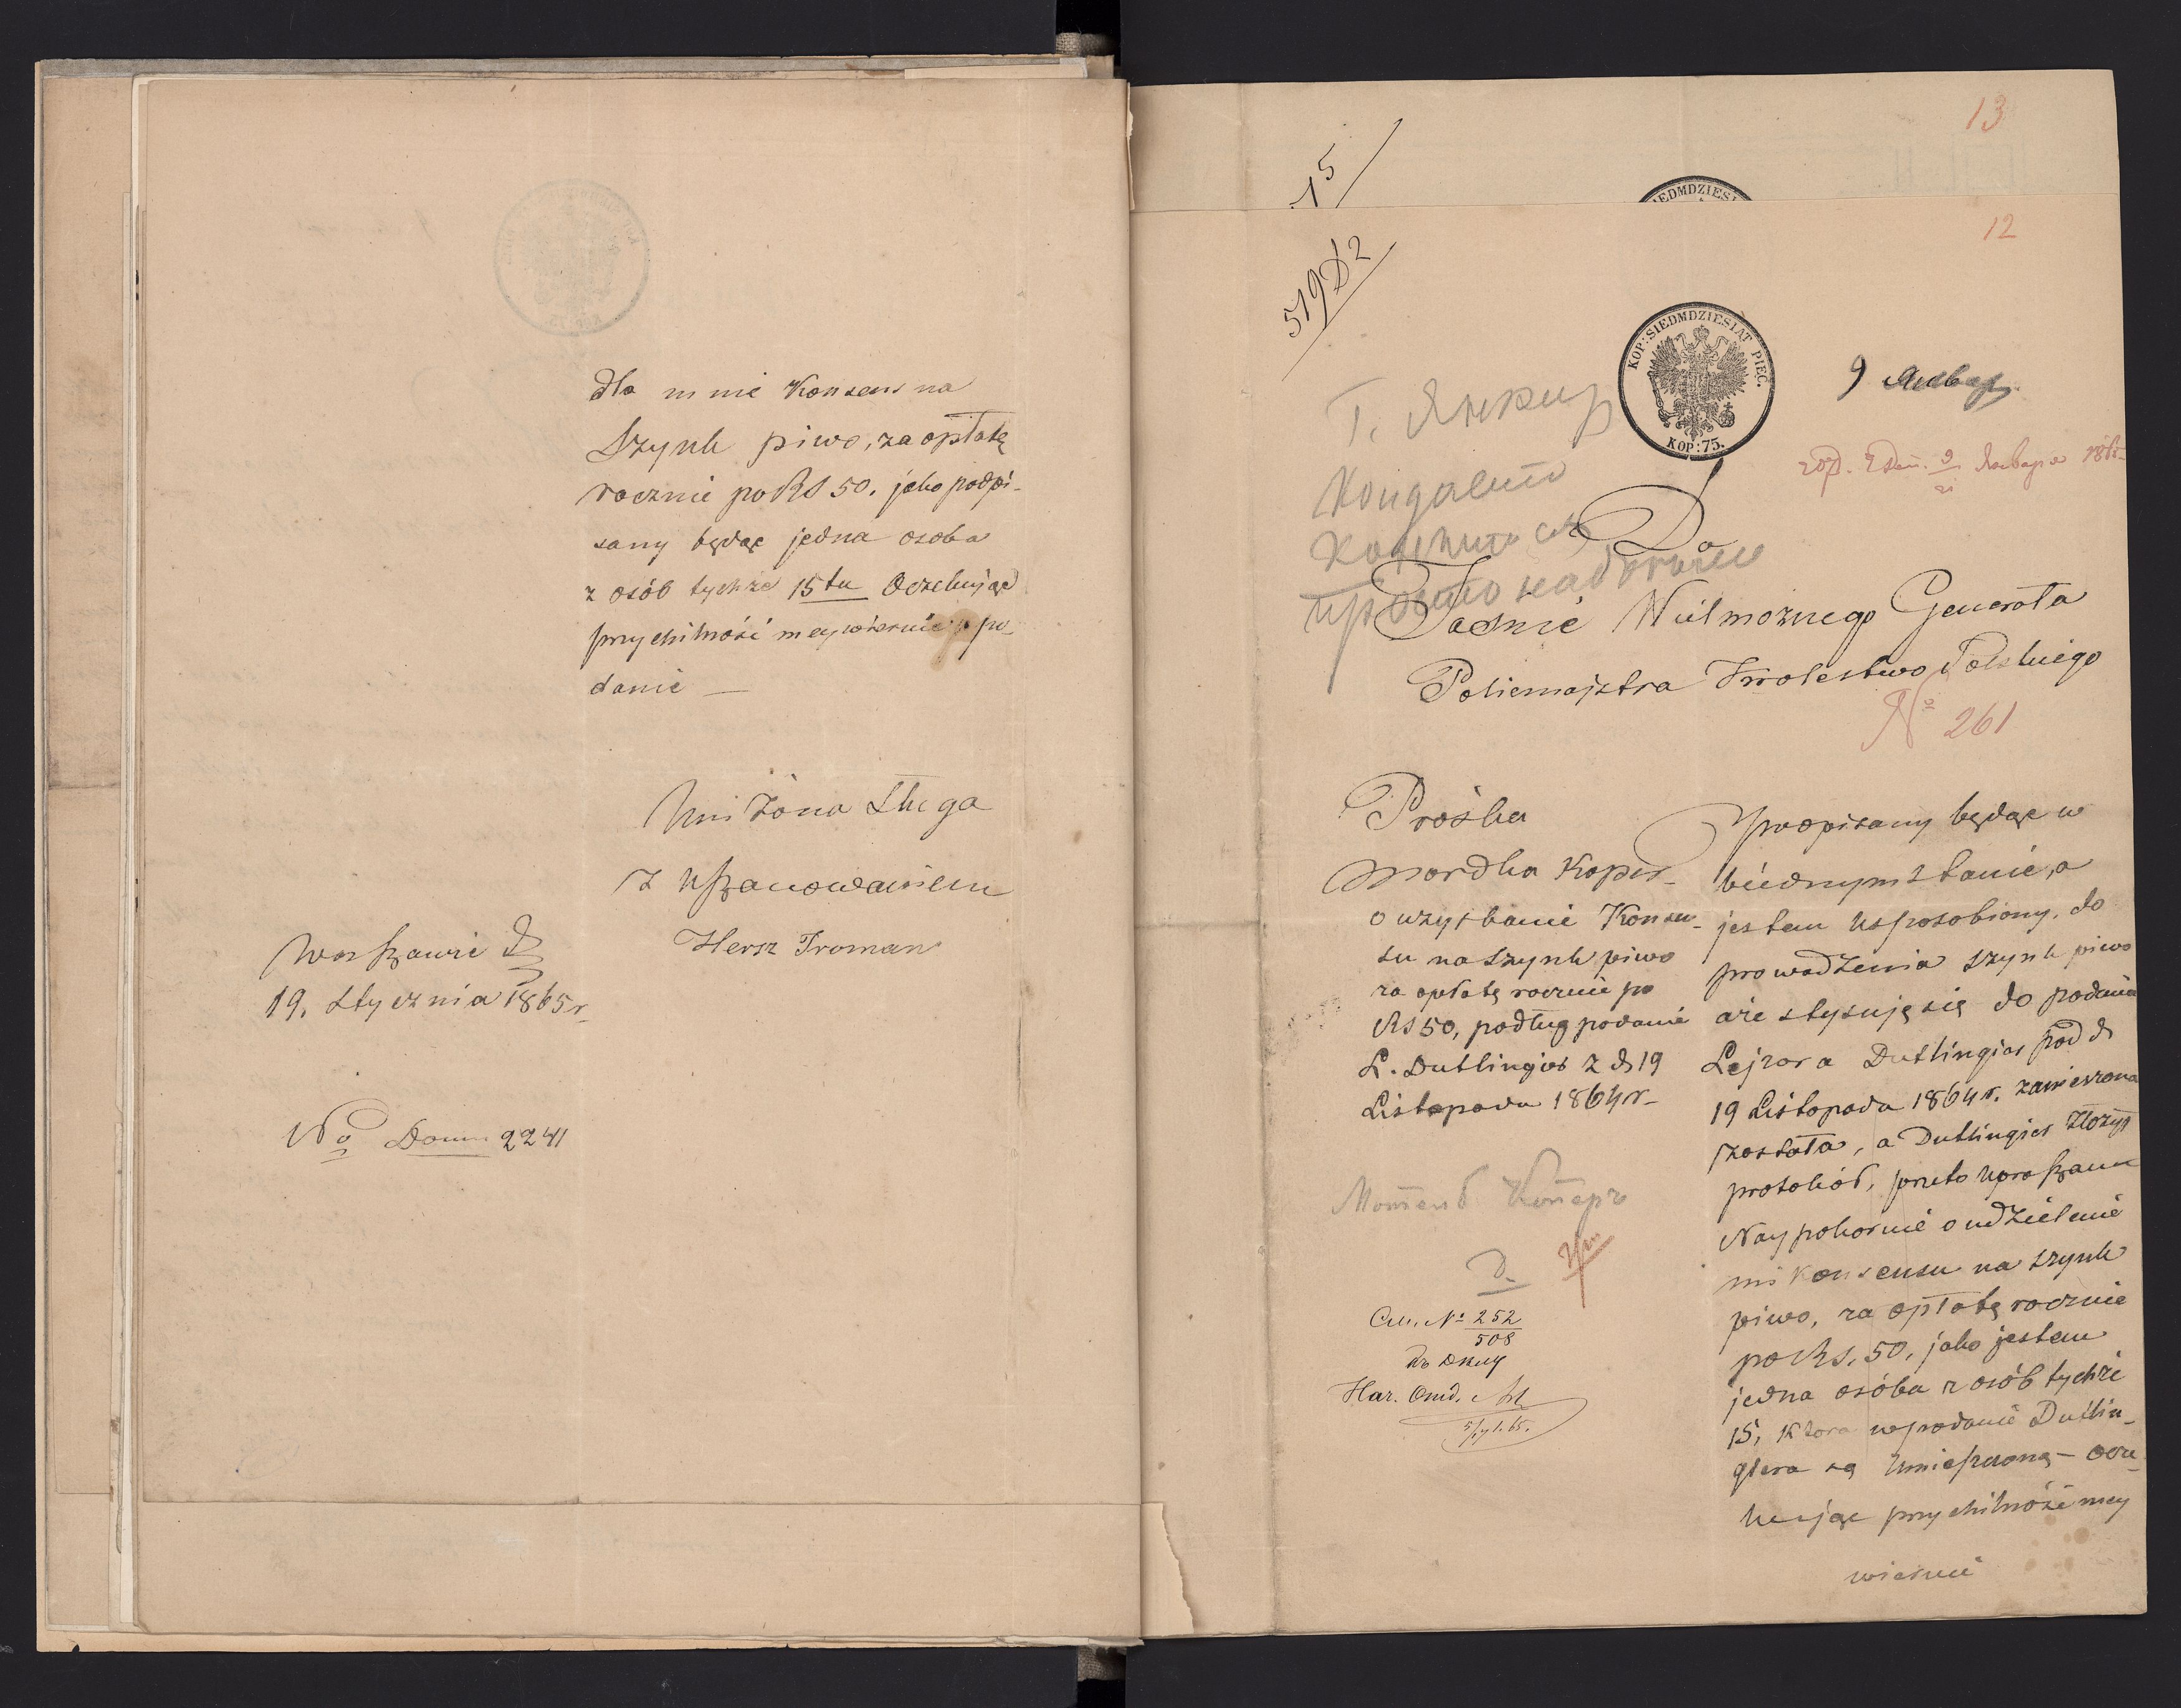 dla mnie Konsens na
Szynk piwo, za opłatę
rocznie po Rs 50. jako podpi-
sany będąc jedna osoba
z osób tychże 15tu Oczekując
przychilność mey wiernie po-
danie —
Uniżona Sługa
z uszanowaniem
Hersz Froman
Warszawie d
19. Stycznia 1865 r
No Domu 2241
13
15
SIEDMDZIES
12
519 D2
KOP: SIEDMDZIESIĄT PIĘĆ.
KOP: 75.
9 Января
Января
Do
Jaśnie Wielmożnego Generała
Policmajstra Krolestwo Polskiego
No 261
Prośba
Mordka Koper-
o uzyskanie Konsen-
su na szynk piwo
za opłatę rocznie po
Rs 50, podług podanie
L. Dutlingier z d 19
Listopada 1864 r-
Podpisany będąc w
biednym stanie, a
jestem usposobiony, do
prowadzenia szynk piwo
aże stysuję się do podania
Lejzora Dutlingier pod d
19 Listopada 1864 r. zamieszona
została, a Dutlingier złożył
protokół, przeto upraszam
Naypokornie o udzielenie
mi konsensu na szynk
piwo, za opłatę rocznie
po Rs. 50, jako jestem
jedna osóba z osób tychże
15, ktora w podanie Dutlin-
giera są umieszczoną - ocze-
kując przychilnoźć mey
wiernie
Коперъ
См. № 252
508
Нач. Отд.